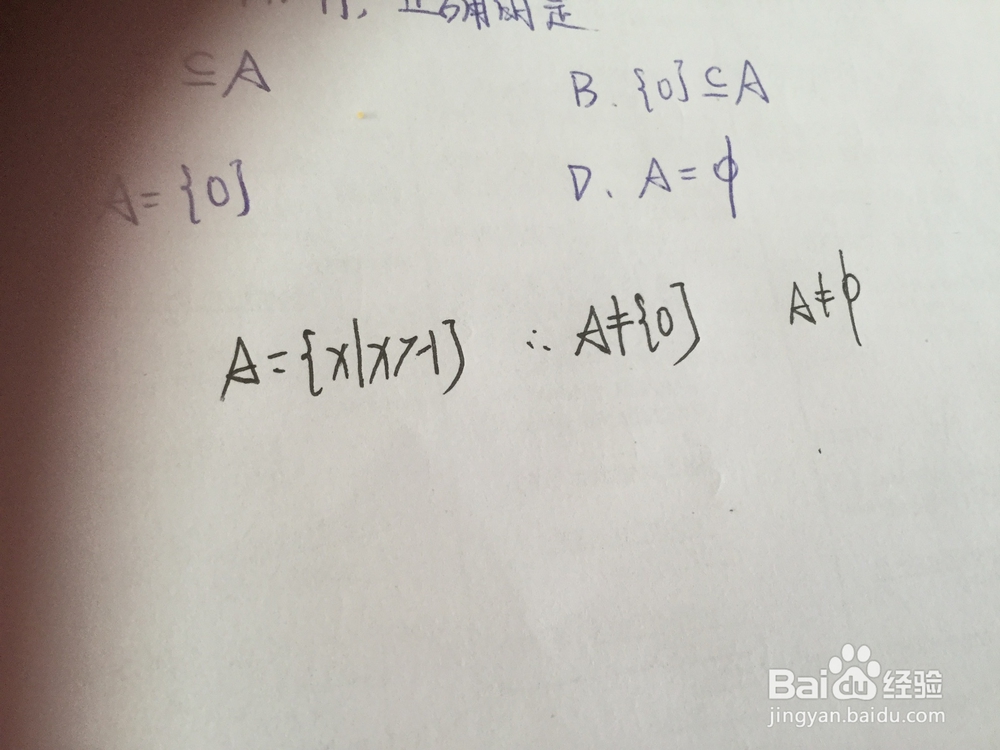 正确的是
⊆A
B. {0}⊆A
A={0}
D. A=φ
A={x|x>-1} ∴ A≠{0} A≠φ
Baidu经验
jingyan.baidu.com